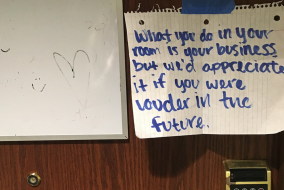 What you do in your
room is your business
but we'd appreciate
it if you were
louder in the
future.